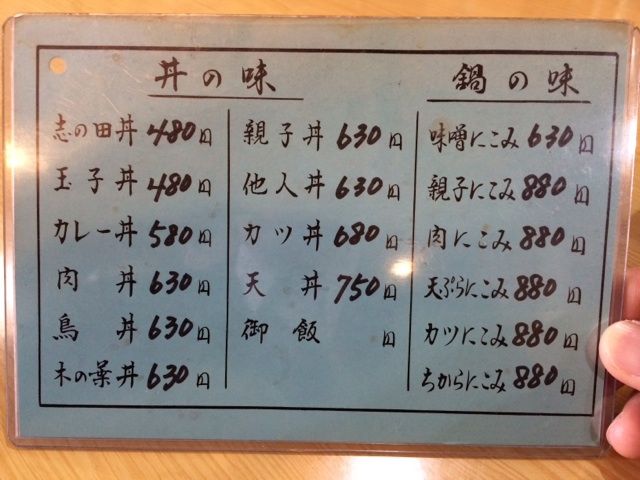 丼の味
志の田丼 480円
玉子丼 480円
カレー丼 580円
肉丼 630円
鳥丼 630円
木の葉丼 630円
親子丼 630円
他人丼 630円
カツ丼 680円
天丼 750円
御飯 円
鍋の味
味噌にこみ 630円
親子にこみ 880円
肉にこみ 880円
天ぷらにこみ 880円
カツにこみ 880円
ちからにこみ 880円